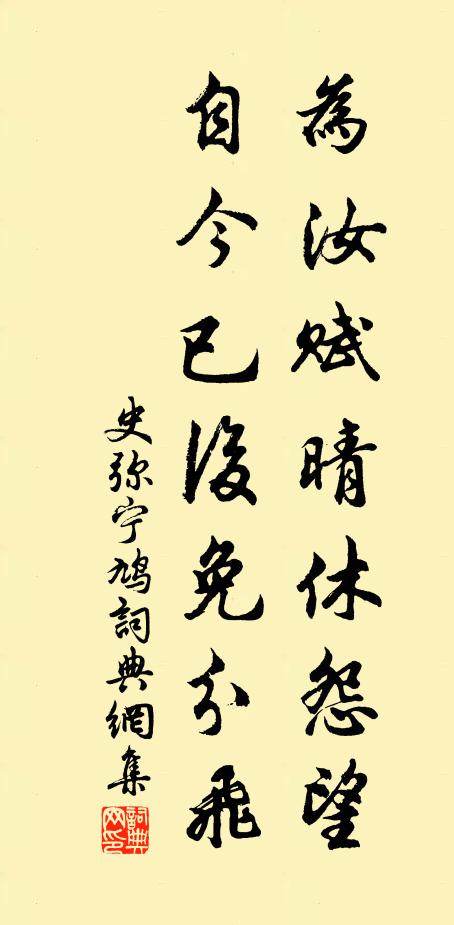 為汝賦晴休怨望
自今已後免分飛
史弥宁鳩詞典網集
詞典
网印